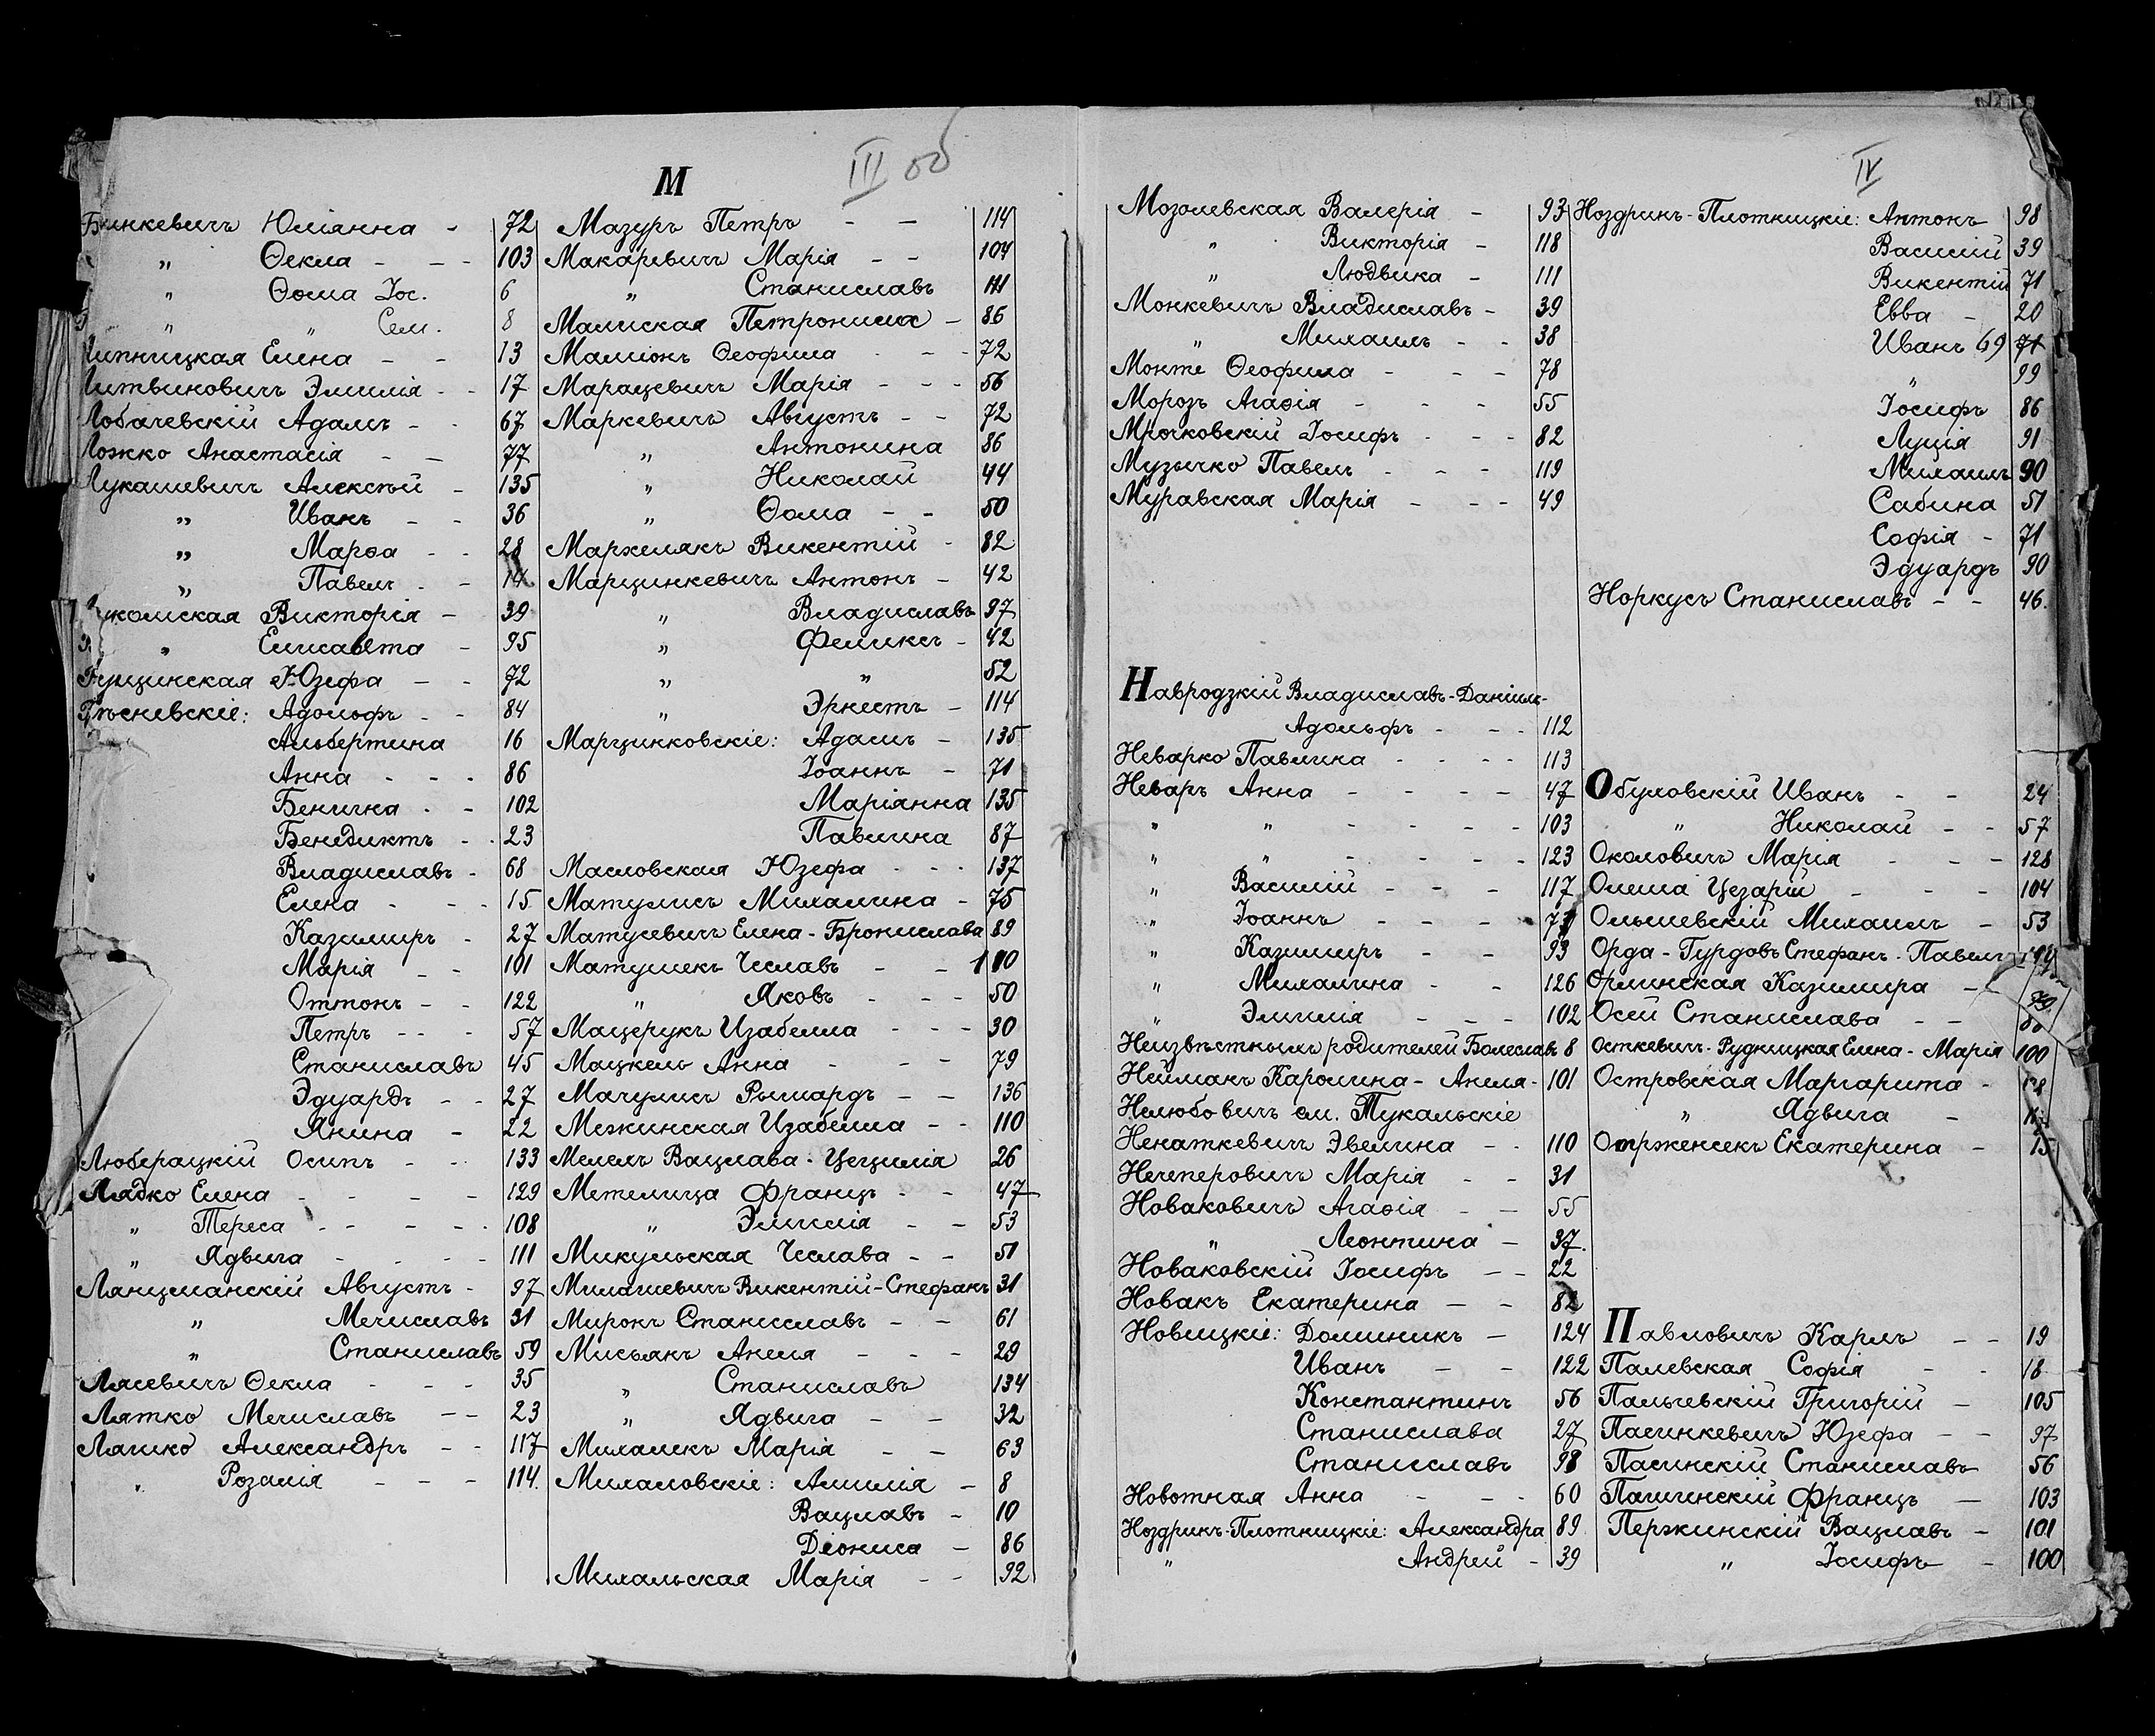 III об
Бинкевичъ Юліанна - 72
„ Ѳекла - - - 103
„ Ѳома Іос. 6
„ „ Сем. 8
Липницкая Елена - - 13
Литвиновичъ Эмилія - - 17
Лобачевскій Адамъ - - 67
Ложко Анастасія - - 77
Лукашевичъ Алексѣй - 135
„ Иванъ - - 36
„ Марѳа - - 28
„ Павелъ - - 14
Лукомская Викторія - 39
„ Елисавета - 95
Лущинская Юзефа - - 72
Лѣсневскіе: Адольфъ - - 84
Альбертина 16
Анна - - - 86
Бенигна - - 102
Бенедиктъ - - 23
Владиславъ - 68
Елена - - - 15
Казимиръ - 27
Марія - - 101
Оттонъ - - 122
Петръ - - - 57
Станиславъ 45
Эдуардъ - - 27
Янина - 22
Люберацкій Осипъ - - 133
Лядко Елена - - - - 129
„ Тереса - - - - - 108
„ Ядвига - - - - 111
Лянцманскій Августъ - 97
„ Мечиславъ 31
„ Станиславъ 59
Лясевичъ Ѳекла - - - 35
Лятко Мечиславъ - - 23
Ляшко Александръ - - 117
„ Розалія - - - 114.
М
Мазуръ Петръ - - 114
Макаревичъ Марія - - 104
„ Станиславъ 111
Малиская Петронила - 86
Маліонъ Ѳеофила - - - 72
Марацевичъ Марія - - - 56
Маркевичъ Августъ - - 72
„ Антонина 86
„ Николай 44
„ Ѳома - - 50
Мархелякъ Викентій - 82
Марцинкевичъ Антонъ - 42
„ Владиславъ 97
„ Феликсъ - 42
„ „ 52
„ Эрнестъ - 114
Марцинковскіе: Адамъ - 135
Іоаннъ - 71
Маріанна 135
Павлина 87
Масловская Юзефа - - - 137
Матулисъ Михалина - 75
Матусевичъ Елена-Бронислава 89
Матушекъ Чеславъ - - 110
„ Яковъ - - - 50
Мацерукъ Изабелла - - - 30
Мацкель Анна - - - 79
Мачулисъ Рышардъ - - 136
Межинская Изабелла - - 110
Мелехъ Вацлава-Цецилія 26
Метелица Францъ - - 47
„ Эмилія - - 53
Микульская Чеслава - - 51
Милашевичъ Викентій-Стефанъ 31
Миронъ Станиславъ - - 61
Мисьякъ Анеля - - - 29
„ Станиславъ 134
„ Ядвига - - 32
Михалекъ Марія - - 63
Михаловскіе: Амилія - 8
Вацлавъ - 10
Діонисъ - 86
Михальская Марія - - 92
IV
Мозолевская Валерія - 93
„ Викторія - 118
„ Людвика - 111
Монкевичъ Владиславъ - 39
„ Михаилъ - - 38
Монте Ѳеофила - - - 78
Морозъ Агаѳія - - - 55
Мрочковскій Іосифъ - - - 82
Музычко Павелъ - - - 119
Муравская Марія - - - 49
Навродзкій Владиславъ-Даніилъ-
Адольфъ - - - 112
Неварко Павлина - - - - 113
Неваръ Анна - - - - 47
„ „ - - - - 103
„ „ - - - - 123
„ Василій - - - 117
„ Іоаннъ - - - 73
„ Казимиръ - - 93
„ Михалина - - 126
„ Эмилія - - - 102
Неизвѣстныхъ родителей Болеславъ 8
Нейманъ Каролина-Анеля - 101
Нелюбовичъ см. Тукальскіе
Ненаткевичъ Эвелина - - 110
Нечперовичъ Марія - - 31
Новаковичъ Агаѳія - - 55
„ Леонтина - 37.
Новаковскій Іосифъ - - 22
Новакъ Екатерина - - 82
Новицкіе: Доминикъ - 124
Иванъ - - 122
Константинъ 56
Станислава 27
Станиславъ 98
Новотная Анна - - - 60
Ноздринъ-Плотницкіе: Александра 89
„ Андрей - 39
Ноздринъ-Плотницкіе: Антонъ 98
Василій 39
Викентій 71
Евва - 20
Иванъ 69 71
„ 99
Іосифъ 86
Луція 91
Михаилъ 90
Сабина 51
Софія - 71
Эдуардъ 90
Норкусъ Станиславъ - - 46.
Обуховскій Иванъ - - 24
„ Николай - - 57
Околовичъ Марія - - - 128
Олеша Цезарій - - - 104
Ольшевскій Михаилъ - 53
Орда-Гурдовъ Стефанъ-Павелъ
Орлинская Казимира - -
Осей Станислава - -
Осткевичъ-Рудницкая Елена-Марія 100
Островская Маргарита -
„ Ядвига -
Отрженсекъ Екатерина - 15
Павловичъ Карлъ - - 19
Палевская Софія - - 18
Пальчевскій Григорій - 105
Пасинкевичъ Юзефа - - 97
Пасинскій Станиславъ 56
Пашинскій Францъ - 103
Пержинскій Вацлавъ - 101
„ Іосифъ - 100